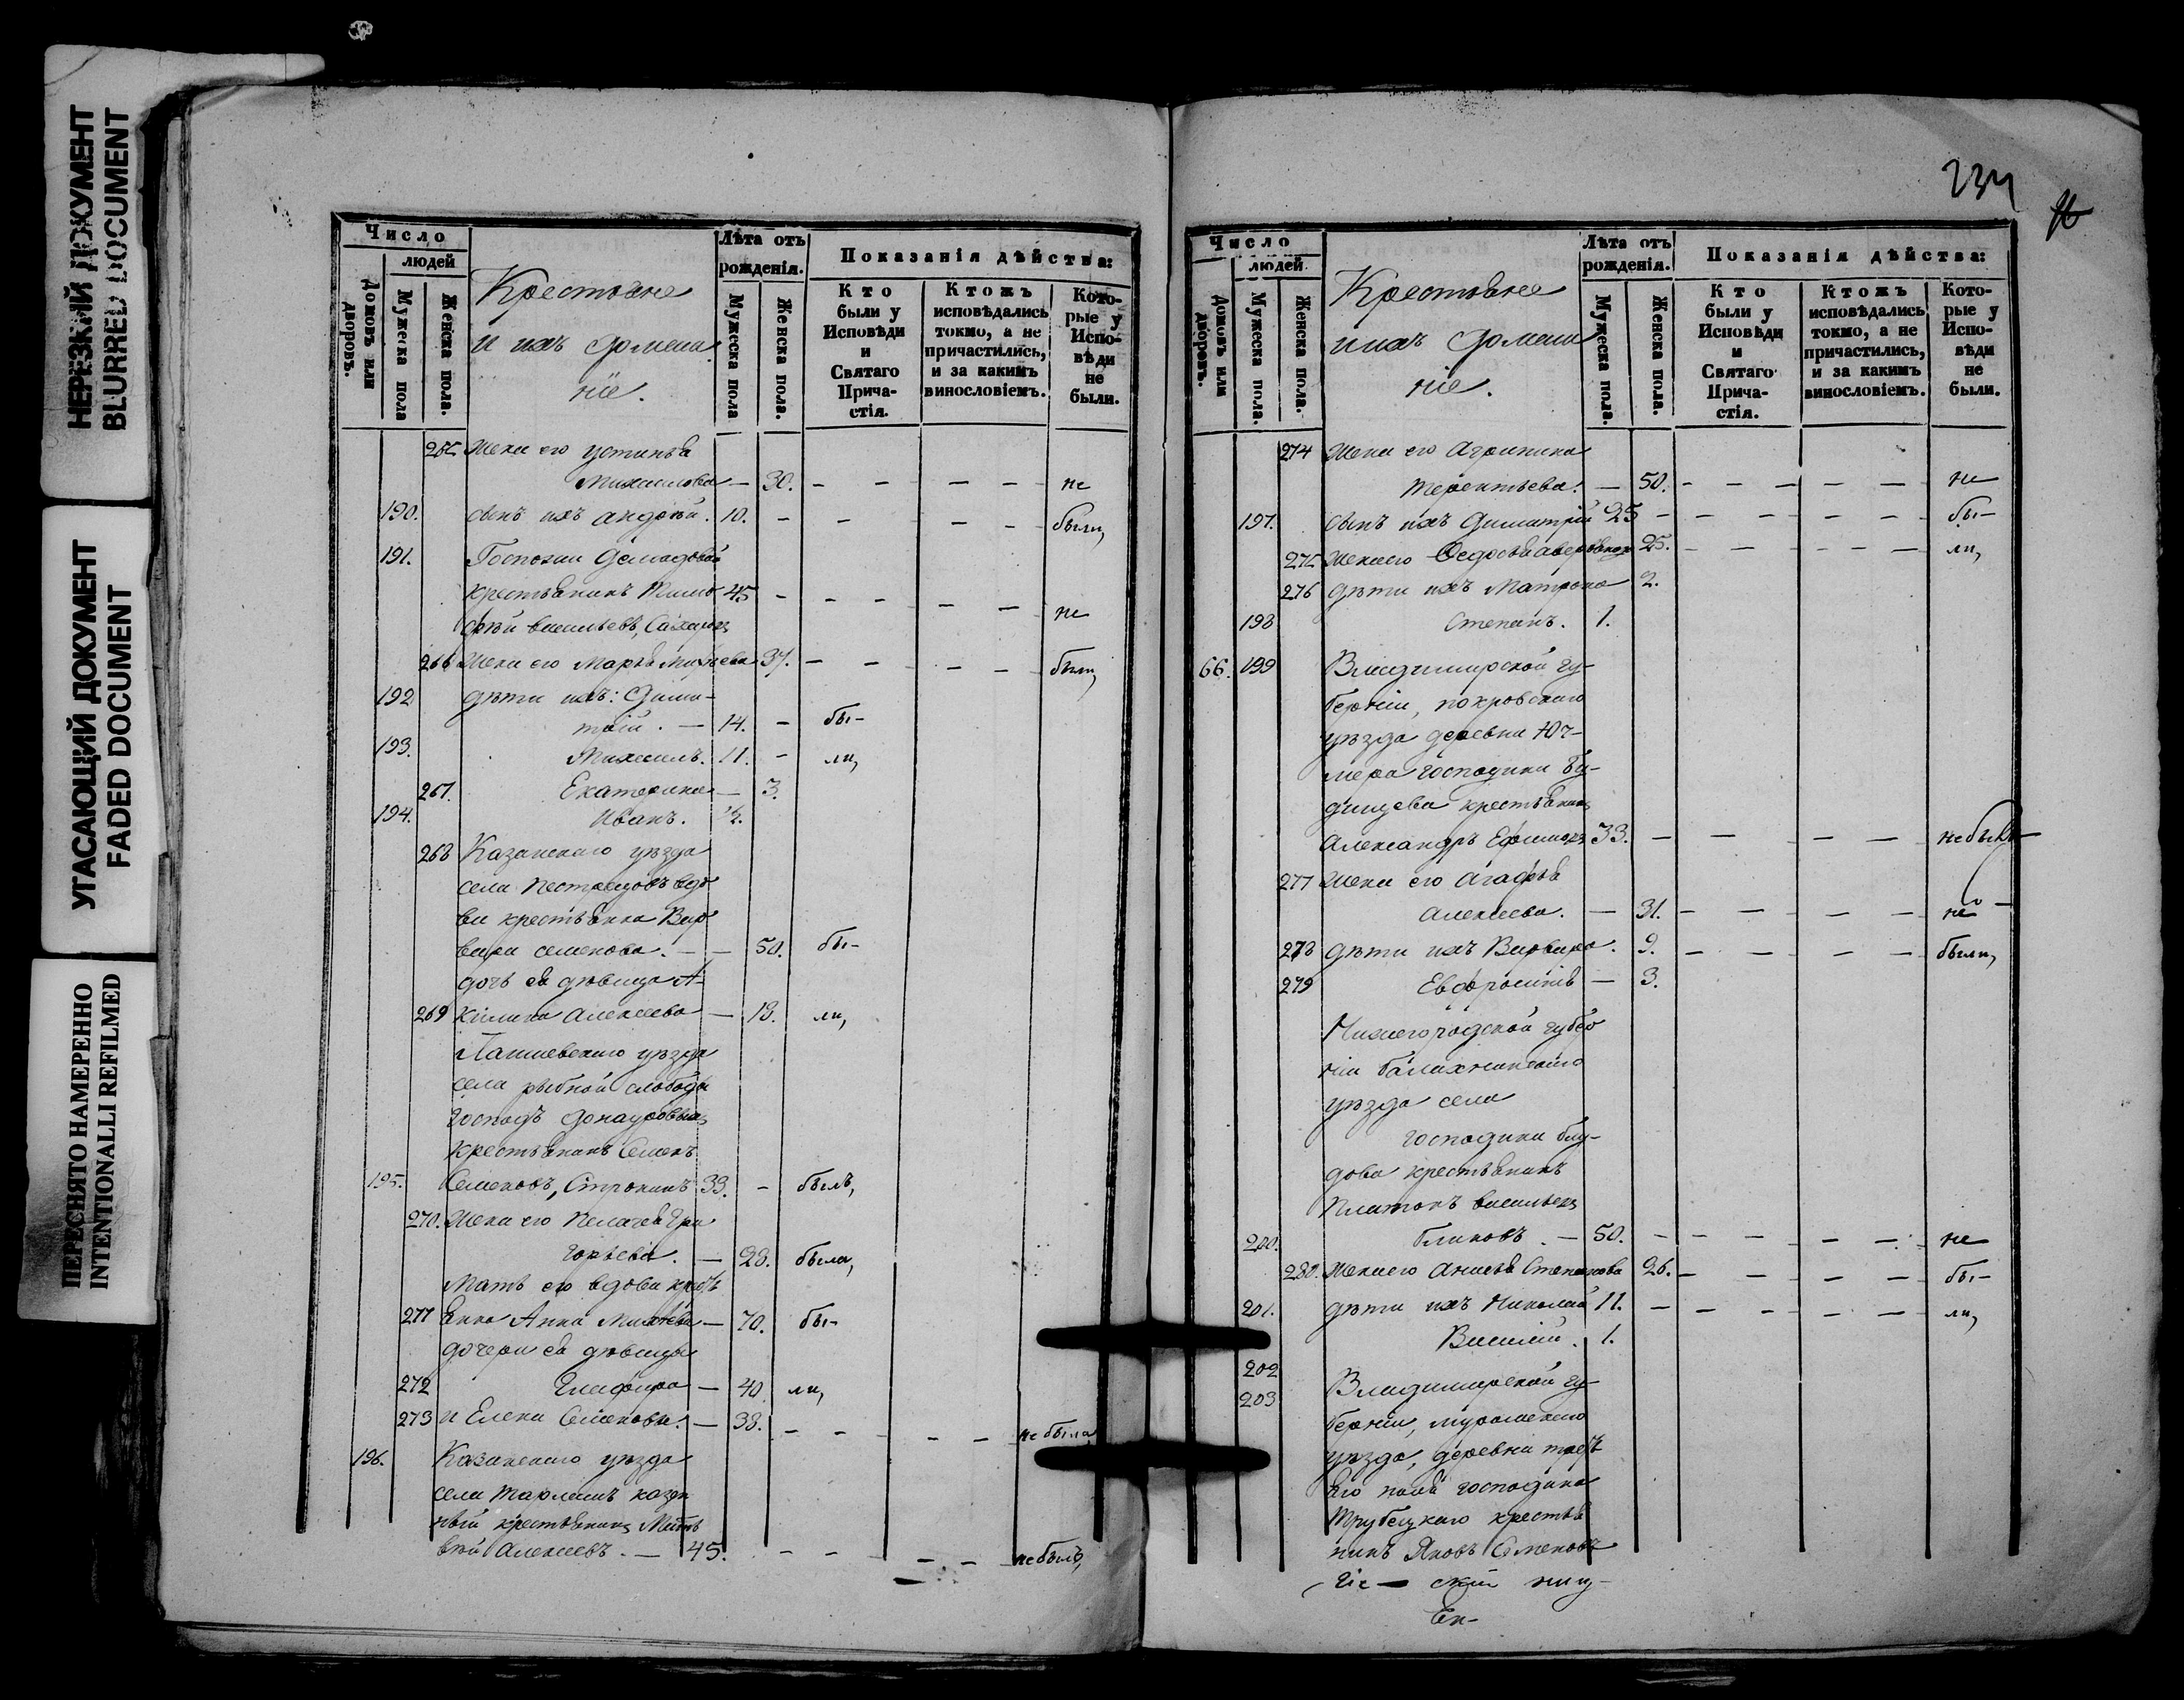 НЕРЕЗКИЙ ДОКУМЕНТ
BLURRED DOCUMENT
УГАСАЮЩИЙ ДОКУМЕНТ
FADED DOCUMENT
ПЕРЕСНЯТО НАМЕРЕННО
INTENTIONALLI REFILMED
Число
людей
Домовъ или дворовъ.
Мужеска пола
Женска пола.
Крестьяне
и ихъ домаш
ніе.
Лѣта отъ рожденія.
Мужеска пола
Женска пола.
Показанія дѣйства:
Кто были у Исповѣди и Святаго Прича-стія.
Ктожъ исповѣдались токмо, а не причастились, и за какимъ винословіемъ.
Кото-рые у Испо-вѣди не были.
265 Жена его Устинья
Михайлова — 30. — — — — не
190. сынъ ихъ Андрей. 10. — — — — были,
191. Госпожи Демидовой
крестьянинъ Тимо 45 — — — — —
фей Васильевъ, не
266 Жена его Марья 37. — — — — были,
192 дѣти ихъ: Дими-
трій. — 14. — бы-
193. Михаилъ. 11. — ли,
267. Екатерина — 3.
194. Иванъ. ½.
268 Казанскаго уѣзда
села Пестрецовъ вдо
ва крестьянка Вар
вара Семенова. — — 50. бы-
дочь ея дѣвица А-
269 килина Алексеева — 18. ли,
Лаишевскаго уѣзда
села рыбной слободы
господъ
крестьянинъ Семенъ
195. Семеновъ, Строкинъ 33. — былъ,
270. Жена его Пелагея Гри
горьева. — 28. была,
Мать его вдова крестъ
271 янка Анна — 70. бы-
дочери ея дѣвицы
272 Глафира — 40 ли,
273 и Елена Семеновы. — 38. — — — — — не была,
196. Казанскаго уѣзда
села Тарлаши казен
ный крестьянинъ Матъ
вѣй Алексеевъ. — 45. — — — — не былъ,
234
Число
людей
Домовъ или дворовъ.
Мужеска пола.
Женска пола.
Крестьяне
и ихъ домаш
ніе.
Лѣта отъ рожденія.
Мужеска пола.
Женска пола.
Показанія дѣйства:
Кто были у Исповѣди и Святаго Прича-стія.
Ктожъ исповѣдались токмо, а не причастились, и за какимъ винословіемъ.
Кото-рые у Испо-вѣди не были.
274 Жена его Агрипина
Терентьева. — 50. — — — — — не
197. сынъ ихъ Димитрій 25 — — — — — — бы-
275 Жена его Ѳедосья 25. — — — — — ли,
276 дѣти ихъ Матрона 2.
198 Степанъ. 1.
66. 199 Владимирской гу-
берніи, покровскаго
уѣзда деревни
господина
крестьянинъ
Александръ Ефимовъ 33. — — — — не былъ
277 Жена его Агафья
Алексеева. — 31. — — — — не
278 дѣти ихъ Варвара. 9. — — — — были,
279 Евфросинія — 3.
Нижегородской губер
ніи Балахнинскаго
уѣзда села
господина
крестьянинъ
Платонъ Васильевъ
200. Блиновъ. — 50. — — — — — не
280. Жена его Анисья Степанова 26. — — — — — бы-
201. дѣти ихъ Николай 11. — — — — — ли,
202 Василій. 1.
203 Владимирской гу-
берніи, муромскаго
уѣзда, деревни
господина
Трубецкаго крестья
нинъ Яковъ Семеновъ